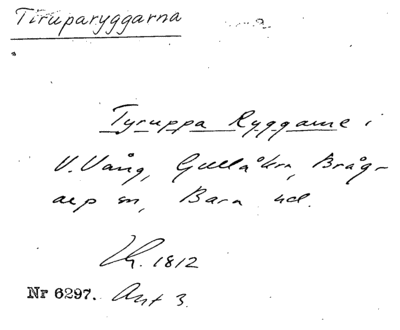 Tiruparyggarna
Tyruppa Ryggarne i
V. Vång, Gullåkra, Brågr-
arp sn, Bara hd.
1812
Nr 6297. Ant 3.